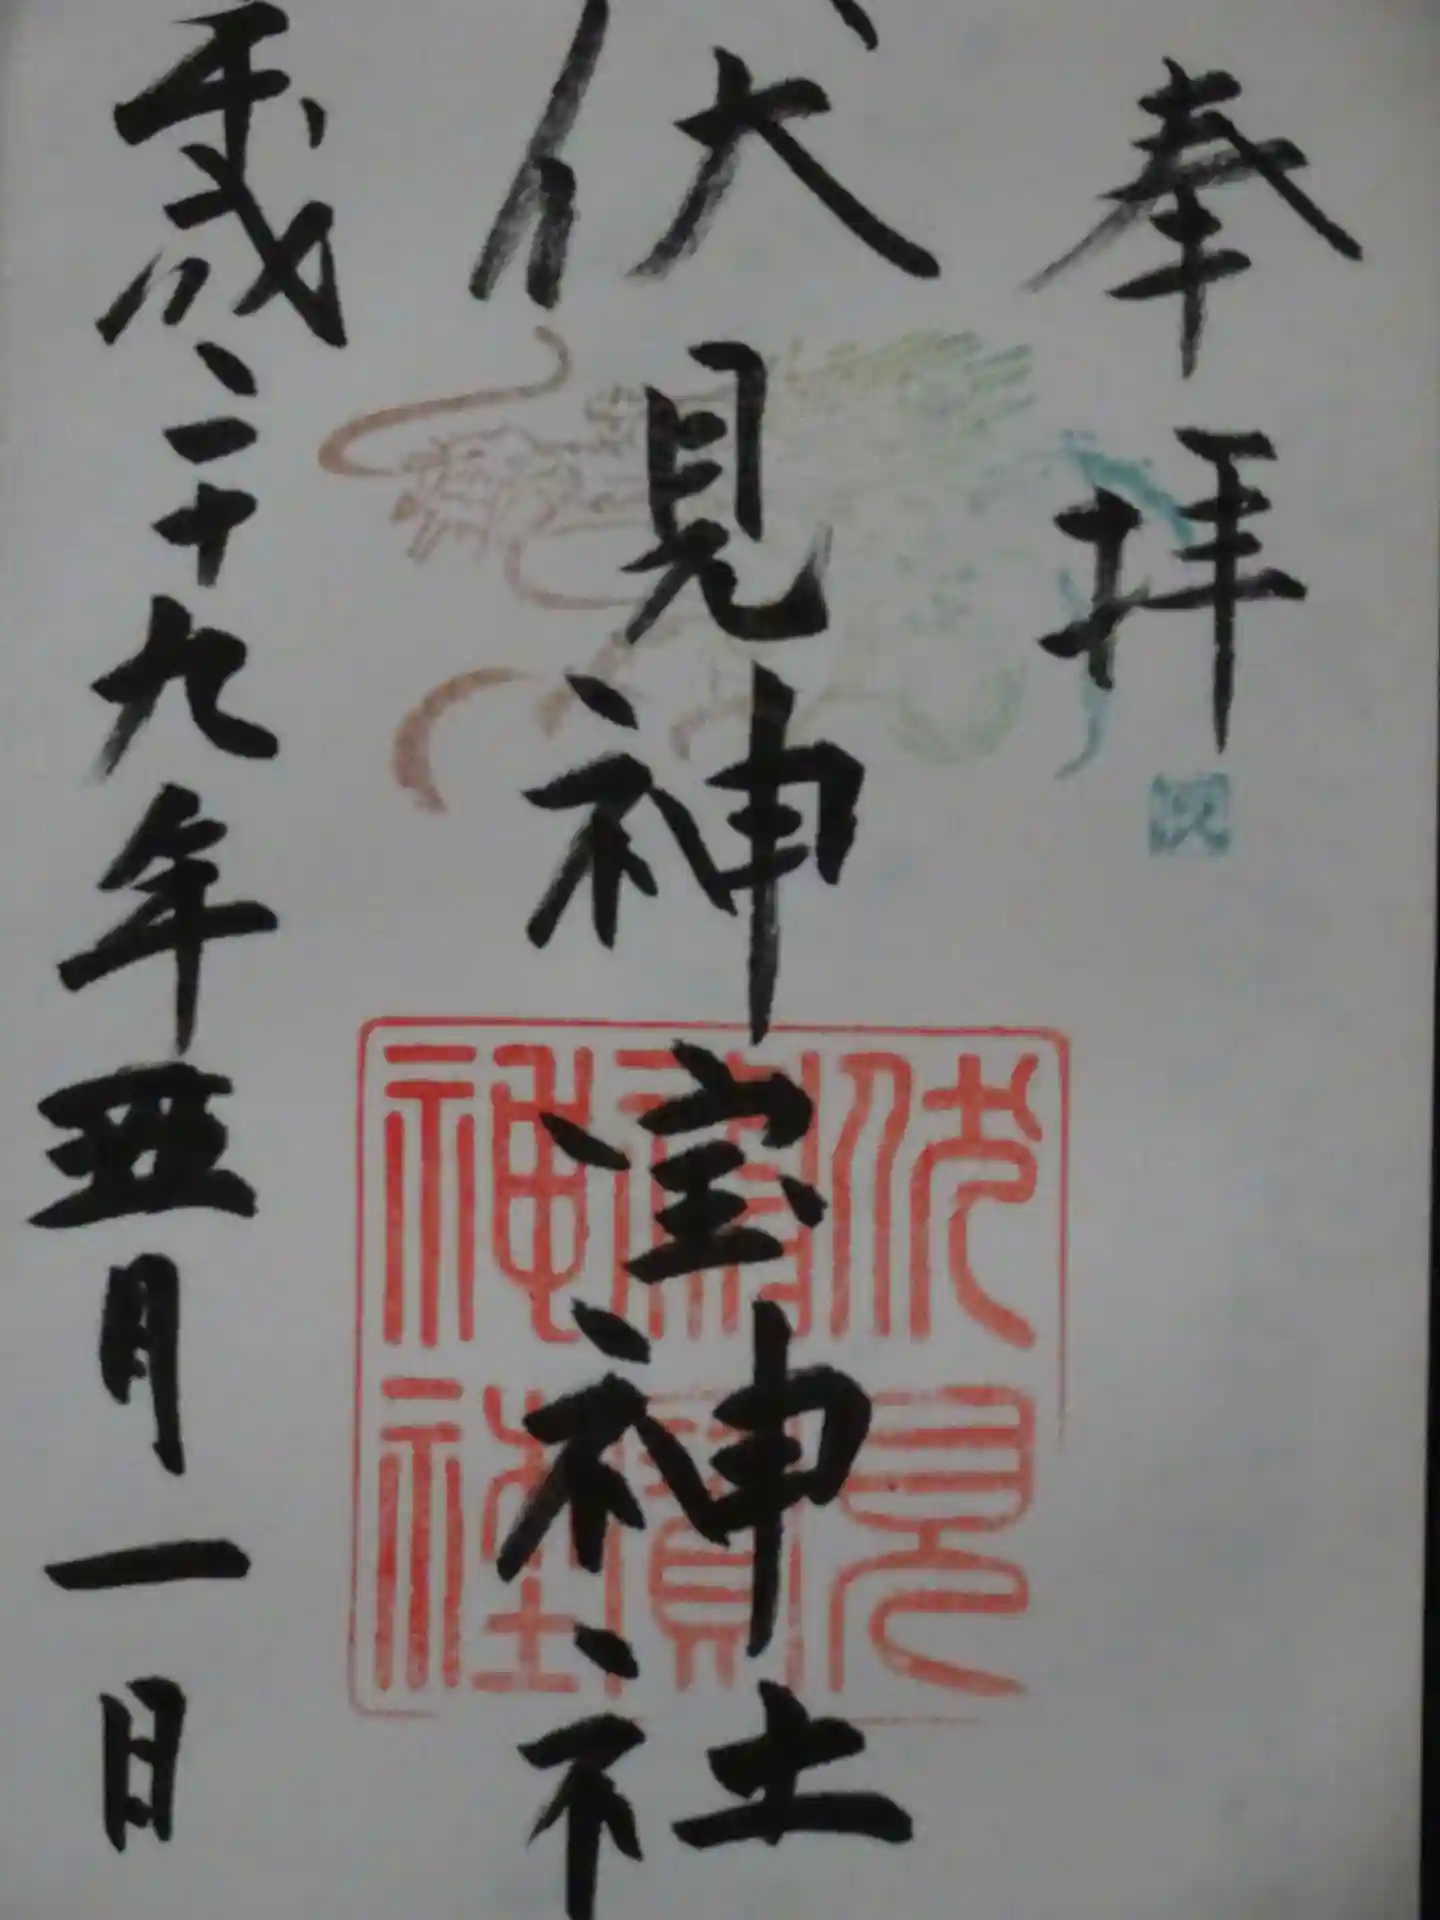 奉拝
伏見神宝神社
伏見
神寳
神社
平成二十九年五月一日